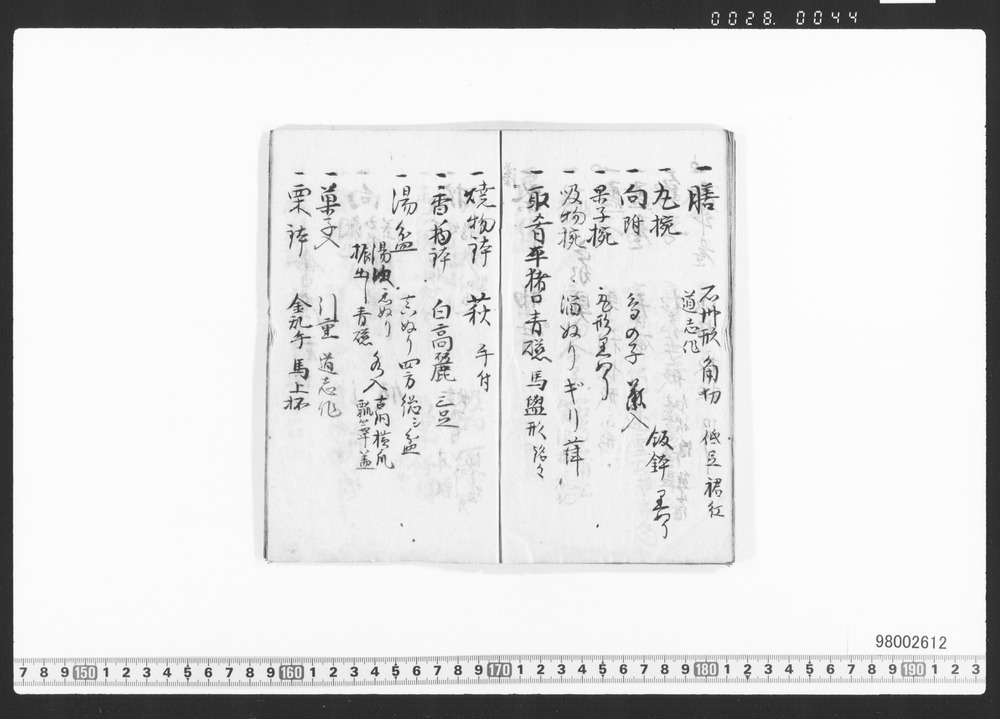 0028. 0044
一 膳 石州形 角切 低足 裙紅
道志作
一 丸椀
飯鉢
一 向附 入
一 菓子椀 丸形
一 吸物椀 溜ぬり
一 取肴 平猪口 青磁 馬盥形
一 焼物鉢 萩 手付
一 香物鉢 白高麗 三足
一 湯盆 真ぬり 四方
湯次 ぬり 入
振出し 青磁 瓢箪蓋
一 菓子 引重 道志作
一 栗鉢 馬上杯
98002612
7 8 9 150 1 2 3 4 5 6 7 8 9 160 1 2 3 4 5 6 7 8 9 170 1 2 3 4 5 6 7 8 9 180 1 2 3 4 5 6 7 8 9 190 1 2 3